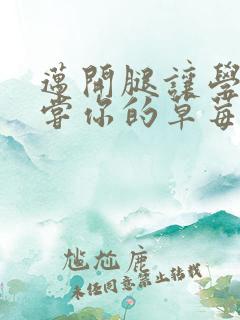 邁開腿讓學
嘗你的草莓
尪尬鹿
未经同意禁止转载